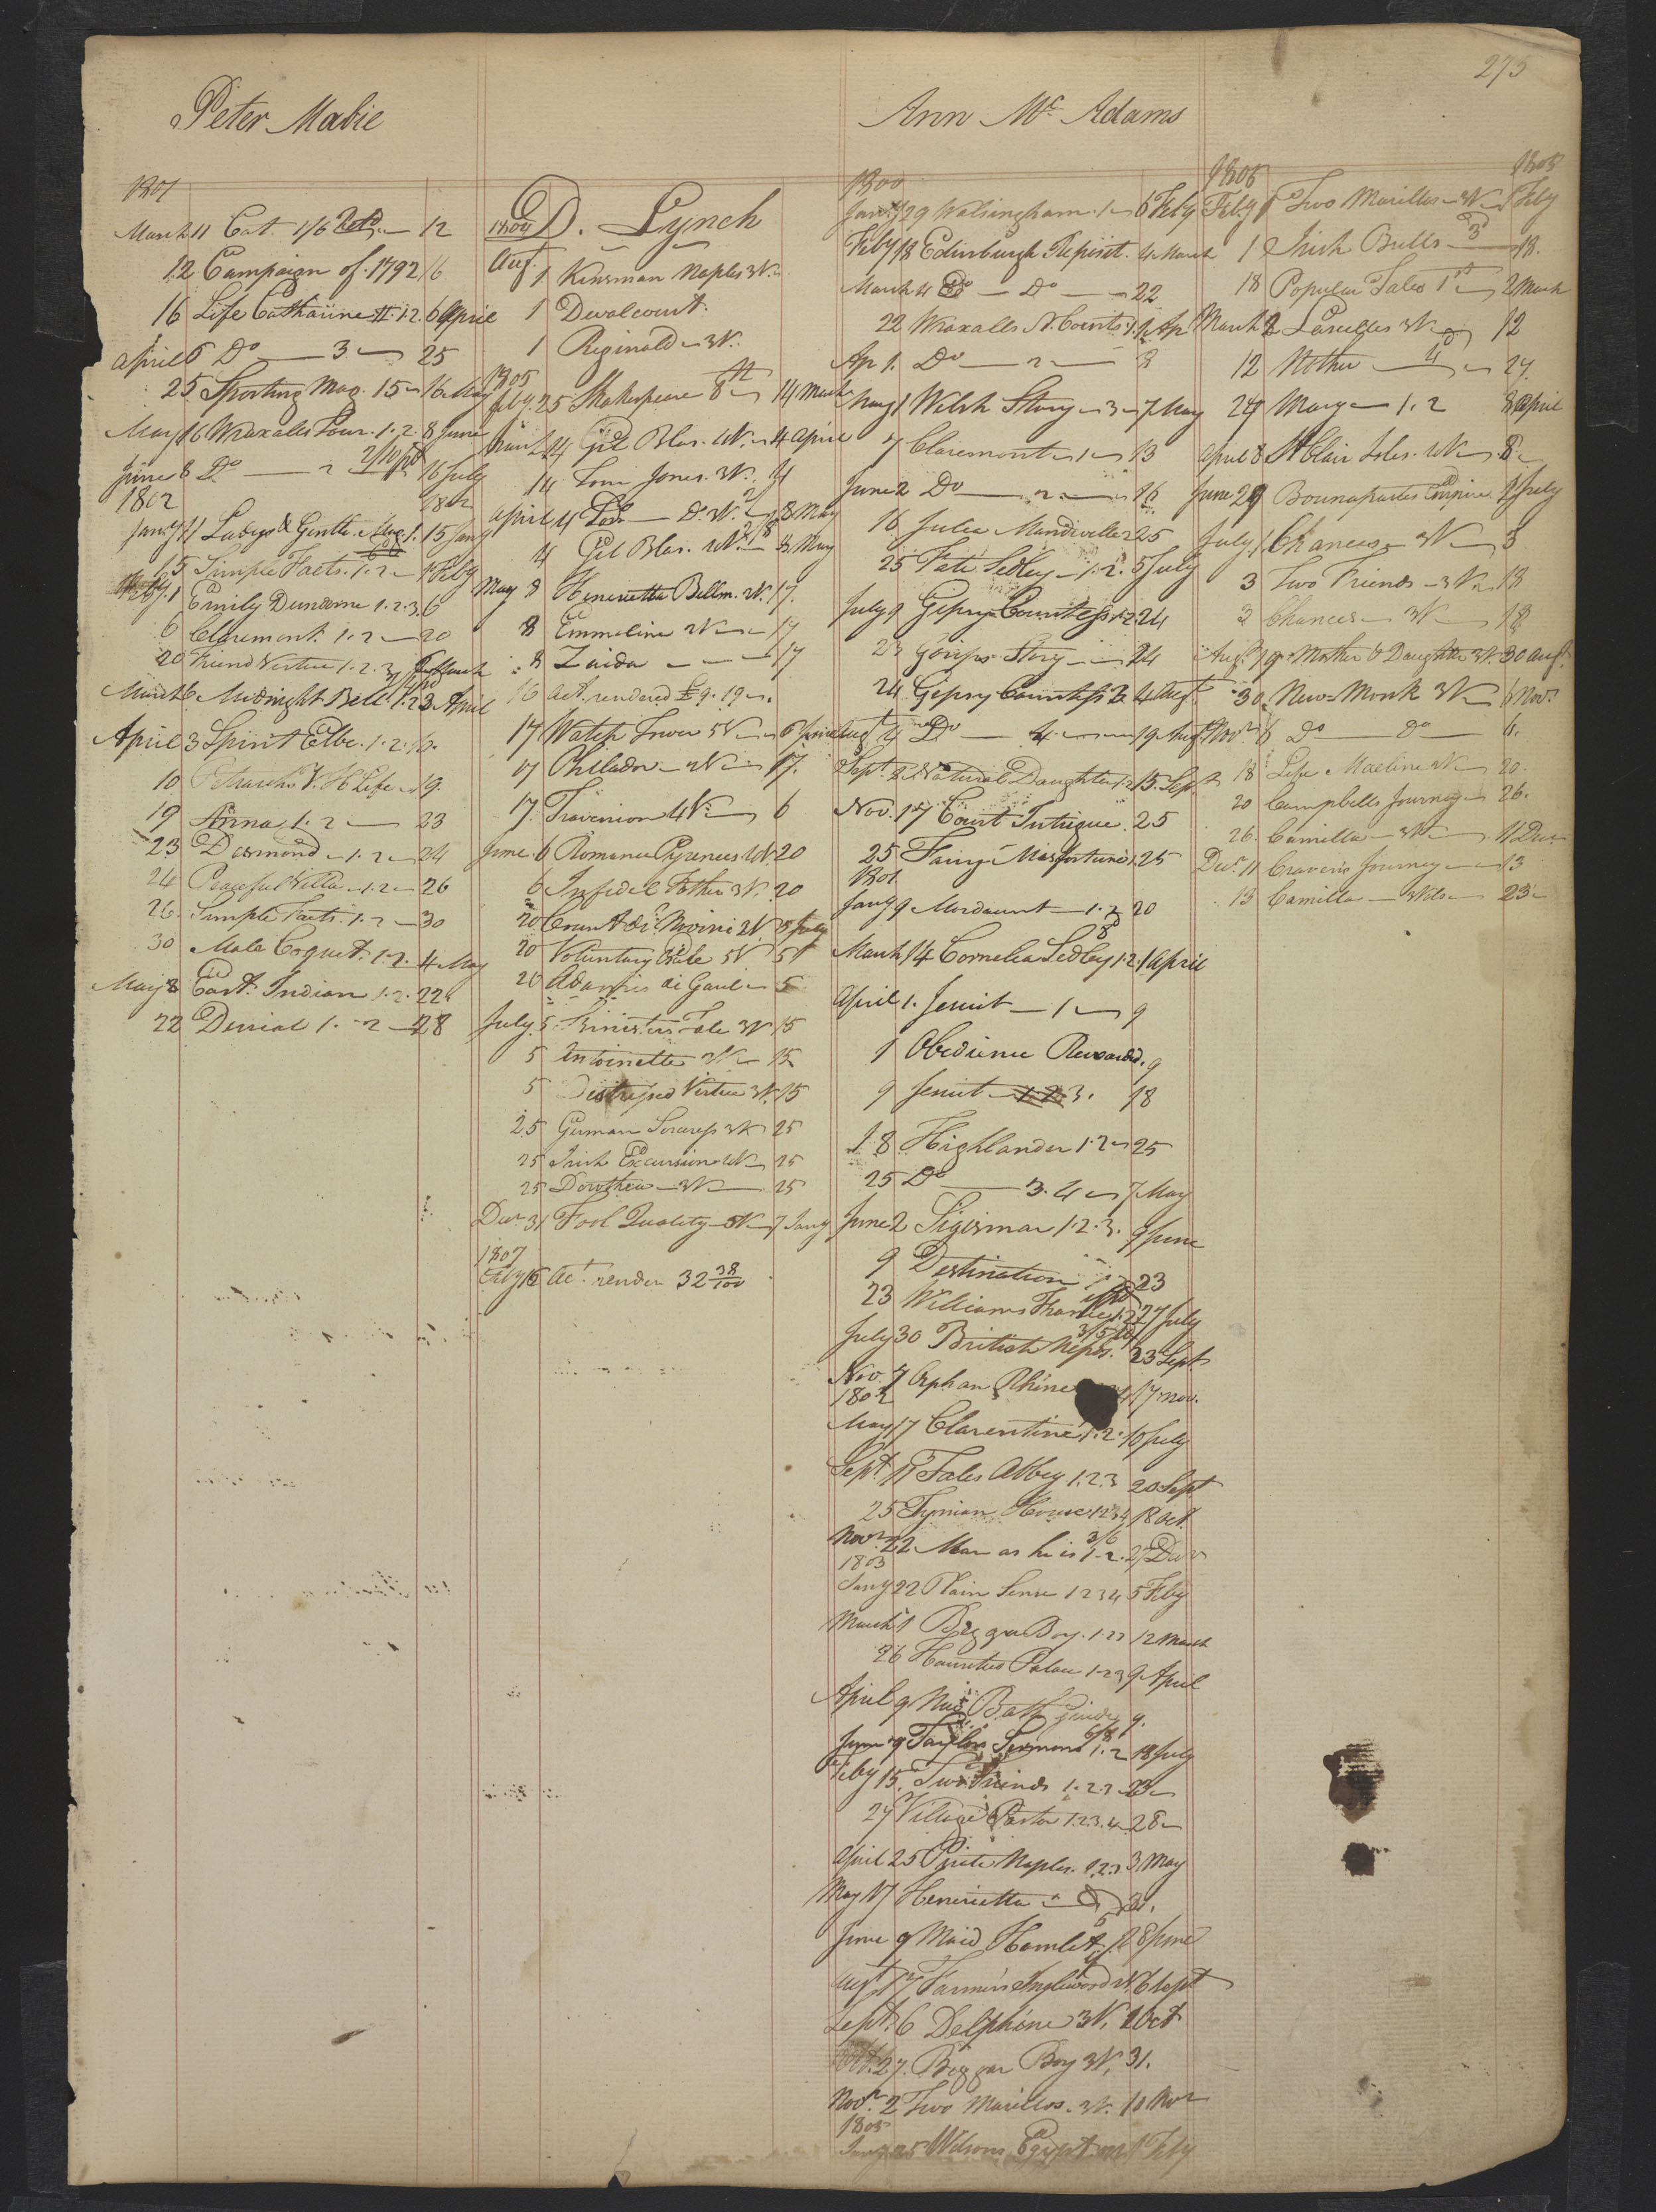 275
Peter Mabie
1801
March 11 Cat. 1/6 12
12 Campaign of 1792 16
16 Life Catharine II 1.2. 6 April
April 6 Do 3 25
25 Sporting Mag. 15 16 May
May 16 Wraxalls Tour. 1.2. 8 June
June 8 Do 2 16 July
1802 1802
Jany 11 Ladys & Gentle. Mag. 1. 15 Jany
15 Simple Facts. 1.2 1 Feby
Feby. 1 Emily Dundorne 1.2.3 6
6 Claremont. 1.2 20
20 Friend Virtue 1.2.3 6 March
March 6 Midnight Bell. 1.2.3 3 April
April 3 Spirit Elbe. 1.2. 10.
10 Petrarch V. H Life 19.
19 Anna 1.2 23
23 Desmond 1.2 24
24 Peaceful Villa 1.2 26
26 Simple Facts. 1.2 30
30 Male Coquet. 1.2. 4 May
May 8 East Indian 1.2. 22
22 Denial 1. 2 28
D. Lynch
1804
Aug. 1 Kinsman Naples 3V.
1 Devalcourt.
1 Reginald 3V.
1805
Feby. 25 Shakespeare 8th 14 March
March 14 Gil Blas. 4V. 4 April
14 Tom Jones. 3V. 4
April 4 Do. 3V. 8 May
4 Gil Blas. 8 May
May 8 Henrietta Bellm. 2V. 17.
8 Emmeline 2V 17
8 Zaida 17
16 act. rendered £9.19.
17 Watch Tower 5V 6 June
17 Philador 2V 17.
17 Travenion 4V 6
June 6 Romance Pyrenees 4V. 20
6 Infidel Father 3V. 20
20 Count di Novini 2V 5 July
20 Voluntary Exile 5V 5
20 Adamis di Gaul 5
July 5 Ministers Tale 3V 15
5 Antoinette 2V 15
5 Distressed Virtue 3V. 15
25 German Sorceress 3V 25
25 Irish Excursion 4V 25
25 Dorothea 3V 25
Decr 31 Fool Quality 5V 7 Jany
1807
Feby 16 act. render 32 38/100
Ann Mc Adams
1800
Jany 29 Walsingham. 1 6 Feby
Feby 18 Edinburgh Reposit. 4 March
March 4 Do Do 22
22 Wraxalls N. Courts 1. 1 Ap
Ap 1. Do 2 8
May 1 Welsh Story 3 7 May
7 Claremont 1 13
June 2 Do 2 16
16 Julia Mandiville 2 25
25 Fate Sedley 1.2. 5 July
July 9 Gipsy Countess 1.2 24
23 Gossips Story 24
24 Gipsy Countess 3 4 Augt.
Augt 4 Do 4 19 Augt
Sept. 2 Natural Daughter 1.2 15 Sept
Nov. 17 Court Intrigue. 25
25 Fairy Misfortune 1. 25
1801
Jany 9 Mordaunt 1.2 20
March 14 Cornelia Sedley 1.2. 1 April
April 1. Jesuit 1 9
1 Obedience Rewarded. 9
9 Jesuit 3. 18
18 Highlander 1.2 25
25 Do 3.4 7 May
June 2 Sigismar 1.2.3. 9 June
9 Destination 23
23 Williams France 1.2 27 July
July 30 British Nepos. 23 Sept
Nov. 7 Orphan Rhine 4 17 Nov.
1802
May 17 Clarentine 1.2. 10 July
Sept 11 Tales Abbey 1.2.3 20 Sept
25 Tynian House 1234 18 Oct.
Novr. 22 Man as he is 1.2. 27 Decr
1803
Jany 22 Plain Sense 1234 5 Feby
March 1 Beggar Boy. 1.23 12 March
26 Haunted Palace 1.23 9 April
April 9 New Bath Guide 9.
June 9 Taylors Sermons 1.2 18 July
Feby 15. Two Friends 1.2.3 23
27 Village Pastor 1.2.3.4 28
April 25 Pirate Naples. 1.2.3 3 May
May 17 Henrietta 31.
June 9 Maid Hamlet. 28 June
Augt 17 Farmers Inglewood 2V. 6 Sept
Sept. 6 Delphine 3V. 1 Oct
Oct. 27. Beggar Boy 3V. 31.
Novr. 2 Two Marillos. 3V. 10 Novr
1805
Jany 25 Wilsons Egypt 1 Feby
1805 1805
Feby 1 Two Marillos 3V 1 Feby
1 Irish Bulls 18.
18 Popular Tales 1st 2 March
March 2 Lascelles 3V 12
12 Mother 4 27
27 Mary 1.2 8 April
April 8 St Clair Isles. 4V 8
June 29 Bounapartes Empire. 1 July
July. 1 Chances 3V 3
3 Two Friends 3V. 18
3 Chances 3V 18
Aug. 19 Mother & Daughter 3V. 30 Augt.
30 New Monk 3V 6 Nov.
Novr. 6 Do Do 6.
18 Life Macline 2V 20.
20 Campbells Journey 26.
26 Camilla 3V 11 Decr
Decr. 11 Cravens Journey 13
13 Camilla 3Vols 23